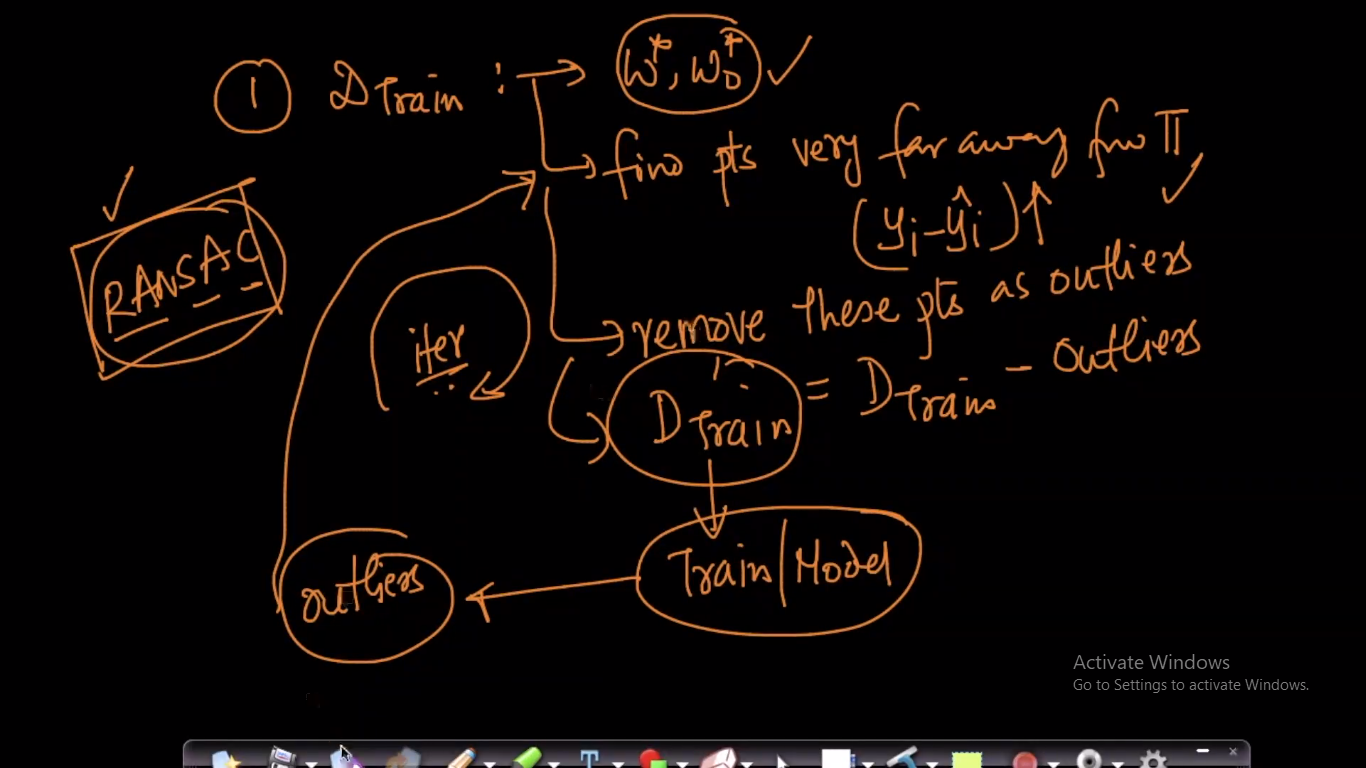 1 DTrain : → w*, w0* ✓
→ find pts very far away from π ✓
(yi - ŷi) ↑
RANSAC ✓
→ remove these pts as outliers
iter
D'Train = DTrain - outliers
Train/Model
outliers
Activate Windows
Go to Settings to activate Windows.